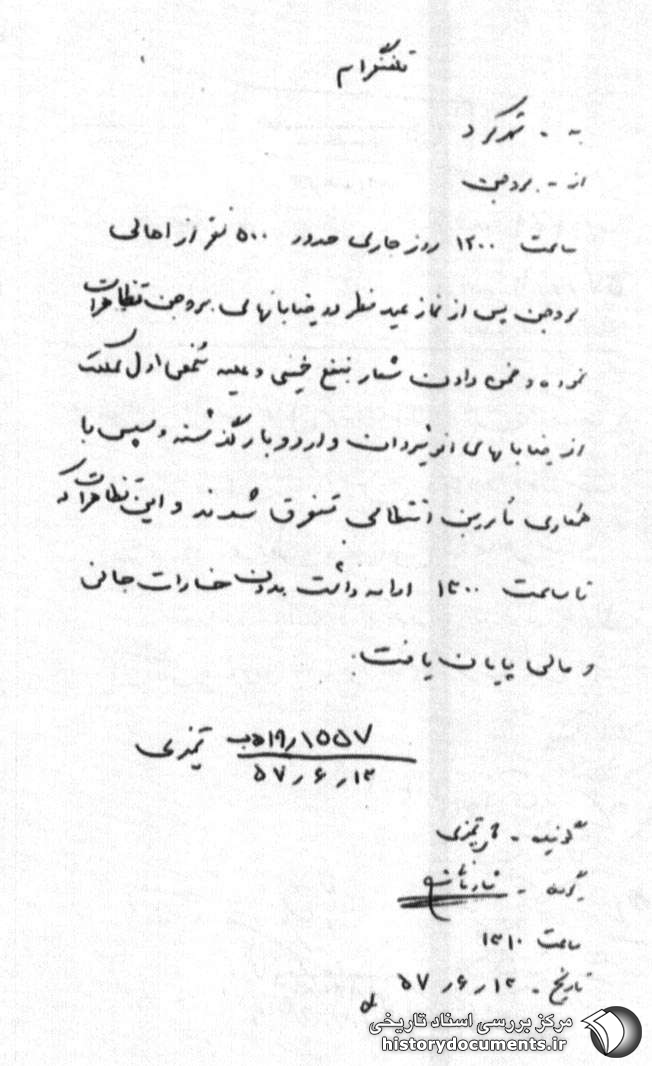 تلفنگرام
به - شهرکرد
از - بروجن
ساعت ۱۲۰۰ روز جاری حدود ۵۰۰ نفر از اهالی
بروجن پس از نماز عید فطر در خیابانهای بروجن تظاهرات
نموده و ضمن دادن شعار بنفع خمینی و علیه شخص اول مملکت
از خیابانهای انوشیروان و اردوبار گذشته و سپس با
همکاری مأمورین انتظامی متفرق شدند و این تظاهرات که
تا ساعت ۱۳۰۰ ادامه داشت بدون خسارات جانی
و مالی پایان یافت.
۱۵۵۷ر۱۹/۵ب
۱۳ر۶ر۵۷
گوینده -
گیرنده -
ساعت ۱۳۱۰
تاریخ - ۱۳ر۶ر۵۷
مرکز بررسی اسناد تاریخی
historydocuments.ir